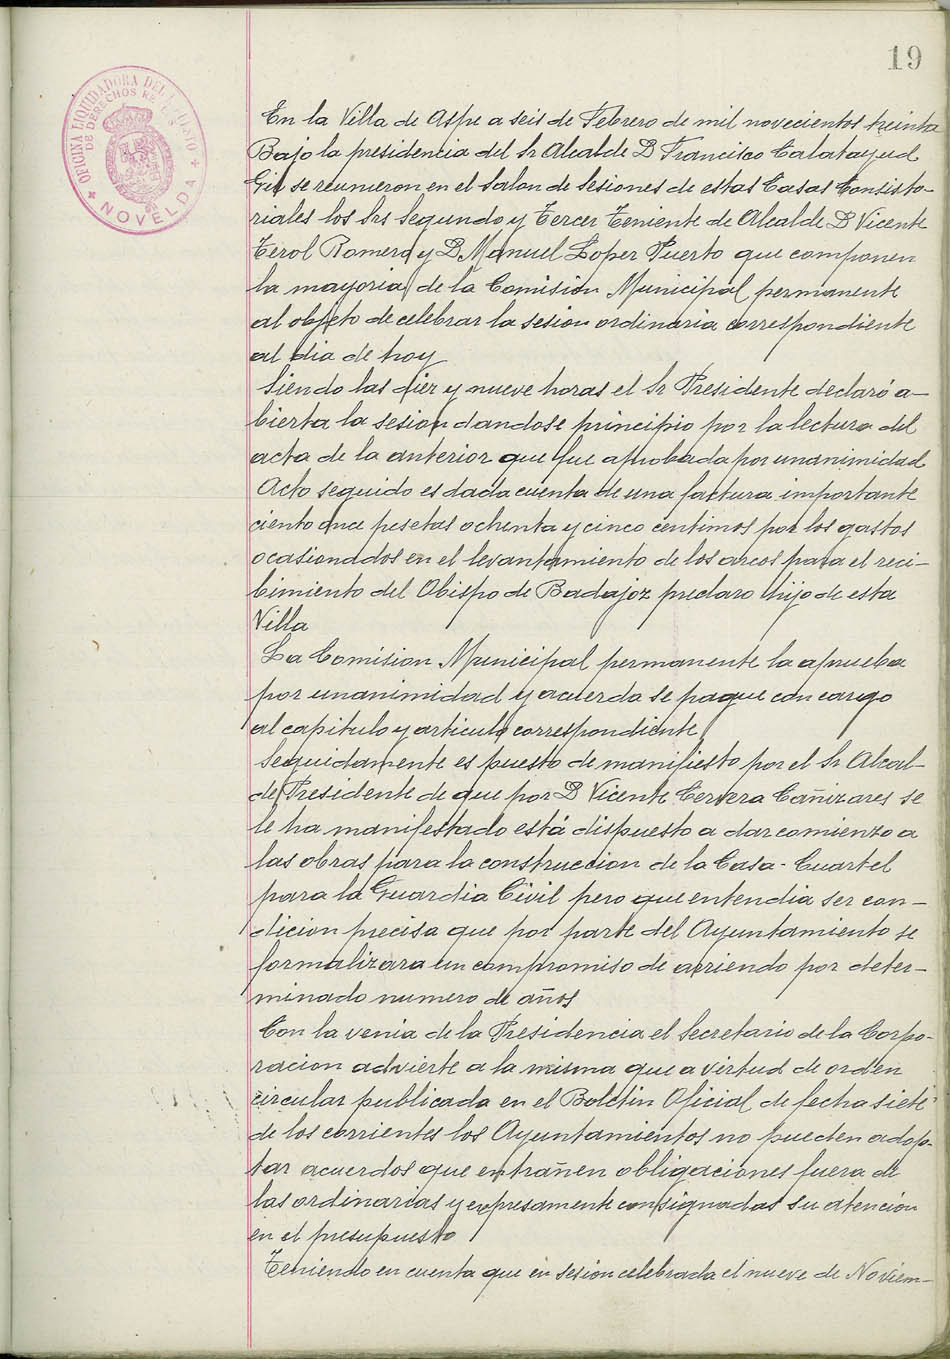 19
OFICINA LIQUIDADORA DEL
DE DERECHOS
NOVELDA
En la Villa de Aspe a seis de Febrero de mil novecientos treinta
Bajo la presidencia del Sr Alcalde D Francisco Calatayud
Gil se reunieron en el Salon de Sesiones de estas Casas Consisto-
riales los Srs Segundo y Tercer Teniente de Alcalde D Vicente
Terol Romero y D Manuel Lopez Puerto que componen
la mayoria de la Comisión Municipal permanente
al objeto de celebrar la sesion ordinaria correspondiente
al dia de hoy
Siendo las diez y nueve horas el Sr Presidente declaró a-
bierta la sesion dandose principio por la lectura del
acta de la anterior que fue aprobada por unanimidad
Acto seguido es dada cuenta de una factura importante
ciento once pesetas ochenta y cinco centimos por los gastos
ocasionados en el levantamiento de los arcos para el reci-
bimiento del Obispo de Badajoz preclaro hijo de esta
Villa
La Comision Municipal permanente la aprueba
por unanimidad y acuerda se pague con cargo
al capitulo y articulo correspondiente
Seguidamente es puesto de manifiesto por el Sr Alcal-
de Presidente de que por D Vicente Cervera Cañizares se
le ha manifestado está dispuesto a dar comienzo a
las obras para la construccion de la Casa-Cuartel
para la Guardia Civil pero que entendia ser con-
dicion precisa que por parte del Ayuntamiento se
formalizara un compromiso de arriendo por deter-
minado numero de años
Con la venia de la Presidencia el Secretario de la Corpo-
racion advierte a la misma que a virtud de orden
circular publicada en el Boletin Oficial de fecha siete
de los corrientes los Ayuntamientos no pueden adop-
tar acuerdos que entrañen obligaciones fuera de
las ordinarias y expresamente consignadas su atención
en el presupuesto
Teniendo en cuenta que en sesion celebrada el nueve de Noviem-